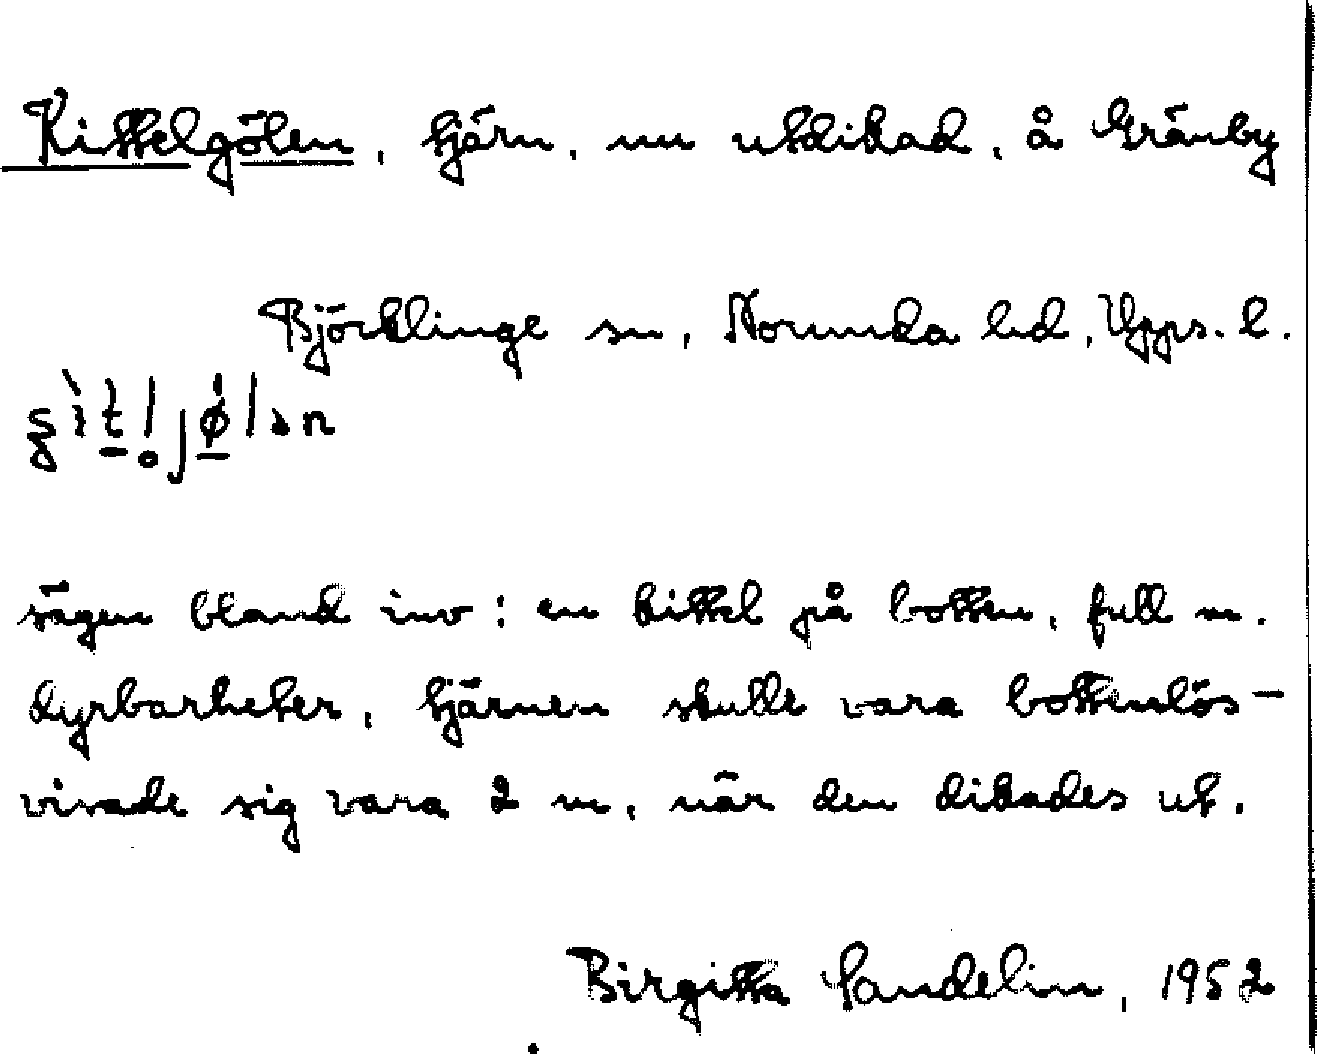 Kittelgölen, tjärn, nu utdikad, å Gränby
Björklinge sn, Norunda hd, Upps. l.
sägen bland inv: en kittel på botten, full m.
dyrbarheter, tjärnen skulle vara bottenlös –
visade sig vara 2 m, när den dikades ut.
Birgitta Sandelin, 1952